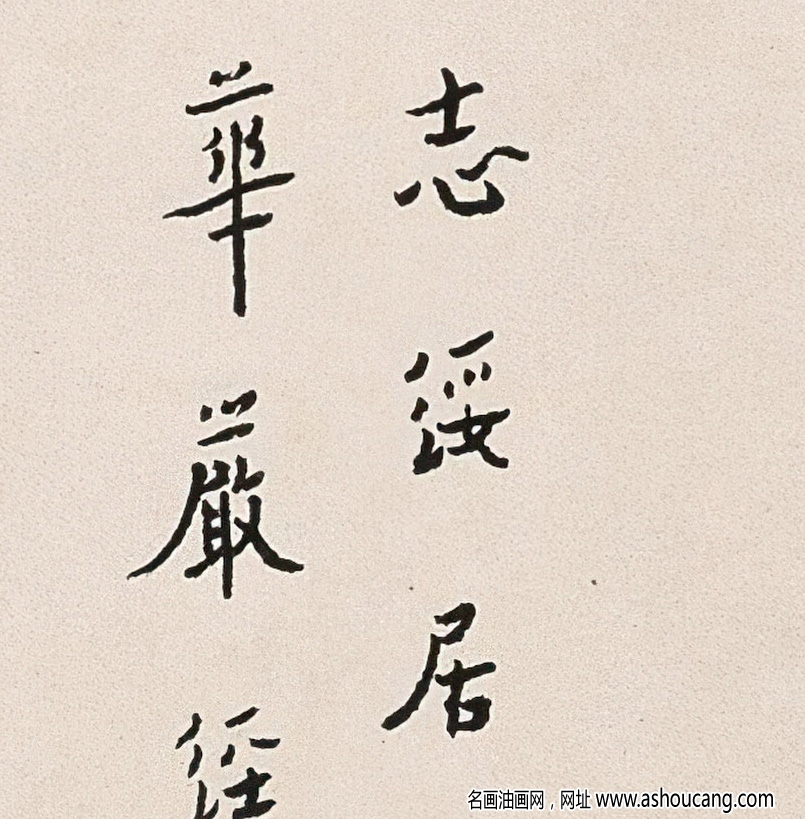 志綏居
華嚴經
名画油画网，网址 www.ashoucang.com